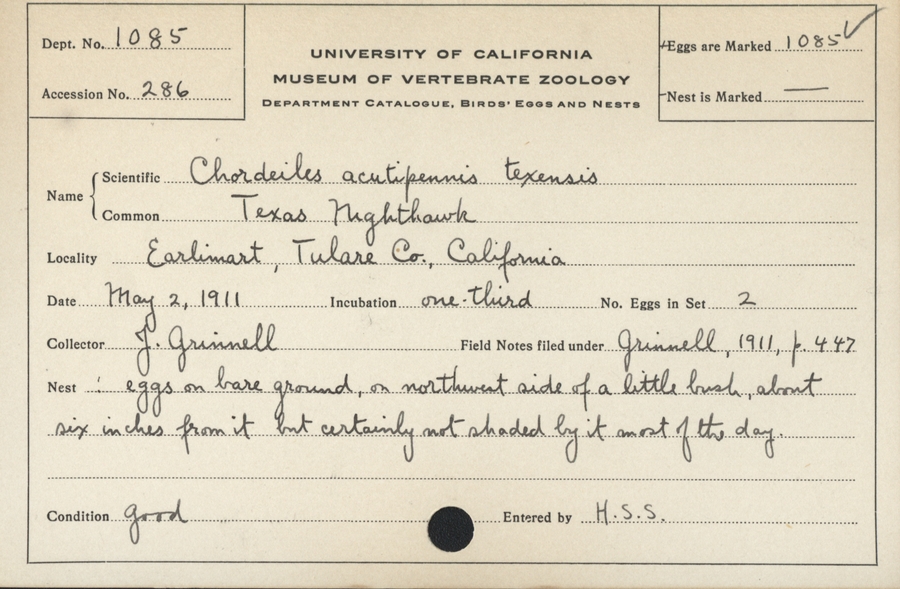 Dept. No. 1085
Accession No. 286
UNIVERSITY OF CALIFORNIA
MUSEUM OF VERTEBRATE ZOOLOGY
DEPARTMENT CATALOGUE, BIRDS' EGGS AND NESTS
Eggs are Marked 1085
Nest is Marked —
Name
Scientific Chordeiles acutipennis texensis
Common Texas Nighthawk
Locality Earlimart, Tulare Co., California
Date May 2, 1911 Incubation one-third No. Eggs in Set 2
Collector J. Grinnell Field Notes filed under Grinnell, 1911, p. 447
Nest : eggs on bare ground, on northwest side of a little bush, about
six inches from it but certainly not shaded by it most of the day.
Condition good Entered by H.S.S.